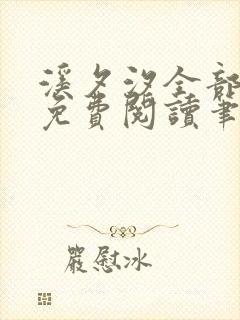 溪夕汐全部
免費閱讀筆
嚴慰冰